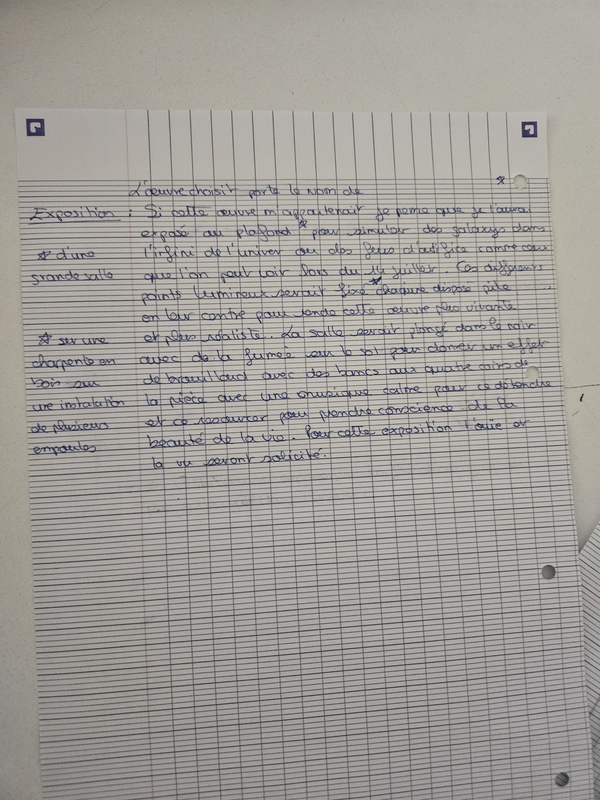 L'œuvre choisit porte le nom de
Exposition : Si cette œuvre m'appartenait je pense que je l'aurai
exposé au plafond * pour simuler des galaxys dans
* d'une l'infini de l'univer ou des feus d'artifice comme ceux
grande salle que l'on peut voir lors du 14 juillet. Ces différents
points lumineux serait fixé * chacune disposé pile
en leur contre pour rende cette œuvre plus vivante
* sur une et plus réaliste. La salle serait plongé dans le noir
charpente en avec de la fumée sur le sol pour donner un effet
bois sur de brouillard avec des bancs aux quatre coins de
une instalution la pièce avec une musique calme pour ce détendre
de plusieurs et ce resourcer pour prendre conscience de la
empoules beauté de la vie. Pour cette exposition l'ouie et
la vu seront solicité.